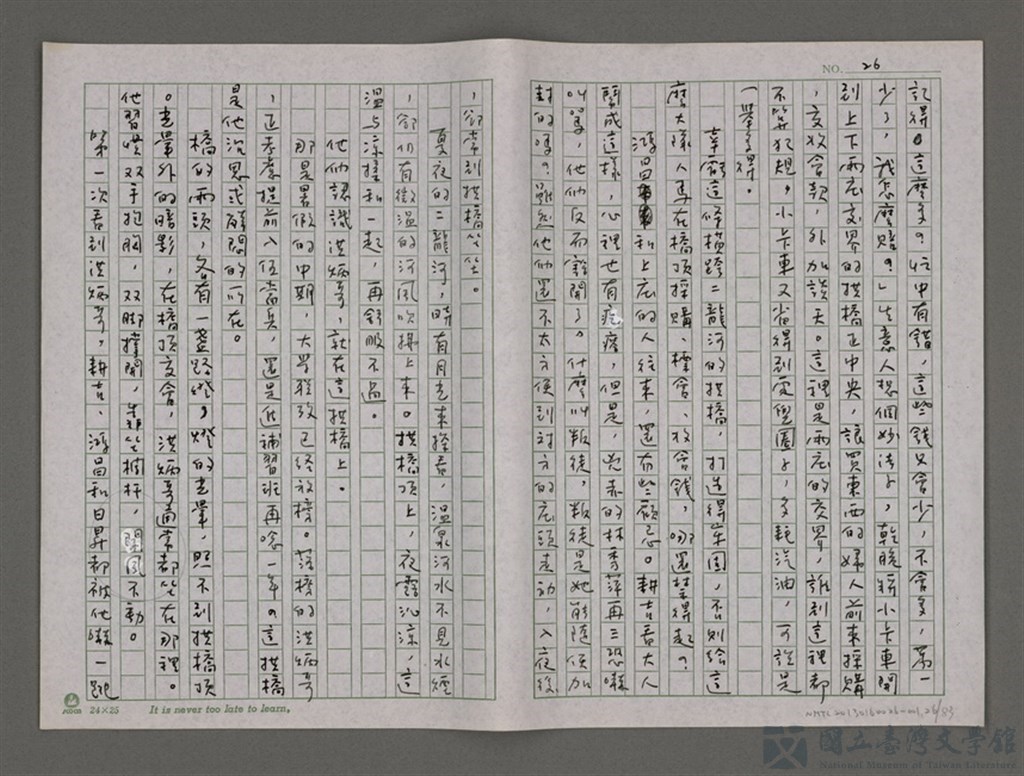 NO. 26
記得這麼多?忙中有錯,這些錢又會少,不會多,萬一
少了,我怎麼賠?」生意人想個妙法子,乾脆將小卡車開
到上下兩庄交界的拱橋正中央,讓買東西的婦人前來採購
,交收會款,外加談天。這裡是兩庄的交界,誰到這裡都
不算犯規,小卡車又省得到處兜圈子,多耗汽油,可說是
一舉多得。
幸虧這條橫跨二龍河的拱橋,打造得牢固,否則給這
麼大隊人馬在橋頂採購、標會、收會錢,哪還禁得起?
鴻昌和上庄的人往來,還有些顧忌。耕吉看大人
鬧成這樣,心裡也有疙瘩,但是,兇赤的林秀萍再三恐嚇
叫罵,他們反而豁開了。什麼叫叛徒,叛徒是她能隨便加
封的嗎?雖然他們還不太方便到對方的庄頭走動,入夜後
,卻常到拱橋坐坐。
夏夜的二龍河,時有月光來探看,溫泉河水不見水煙
,卻仍有微溫的河風吹拂上來。拱橋頂上,夜露沁涼,這
溫與涼揉和一起,再舒服不過。
他們認識洪炳哥,就在這拱橋上。
那是暑假的中期,大學聯考已經放榜。落榜的洪炳哥
,正考慮提前入伍當兵,還是進補習班再唸一年。這拱橋
是他沉思或解悶的所在。
橋的兩頭,各有一盞路燈,燈的光暈,照不到拱橋頂
。光暈外的暗影,在橋頂交會,洪炳哥通常都坐在那裡。
他習慣双手抱胸,双脚撐開,靠坐欄杆,閉風不動。
第一次看到洪炳哥,耕吉、鴻昌和日昇都被他嚇一跳
24×25 It is never too late to learn,
NMTL20130160026-001,26/83
國立臺灣文學館
National Museum of Taiwan Literature